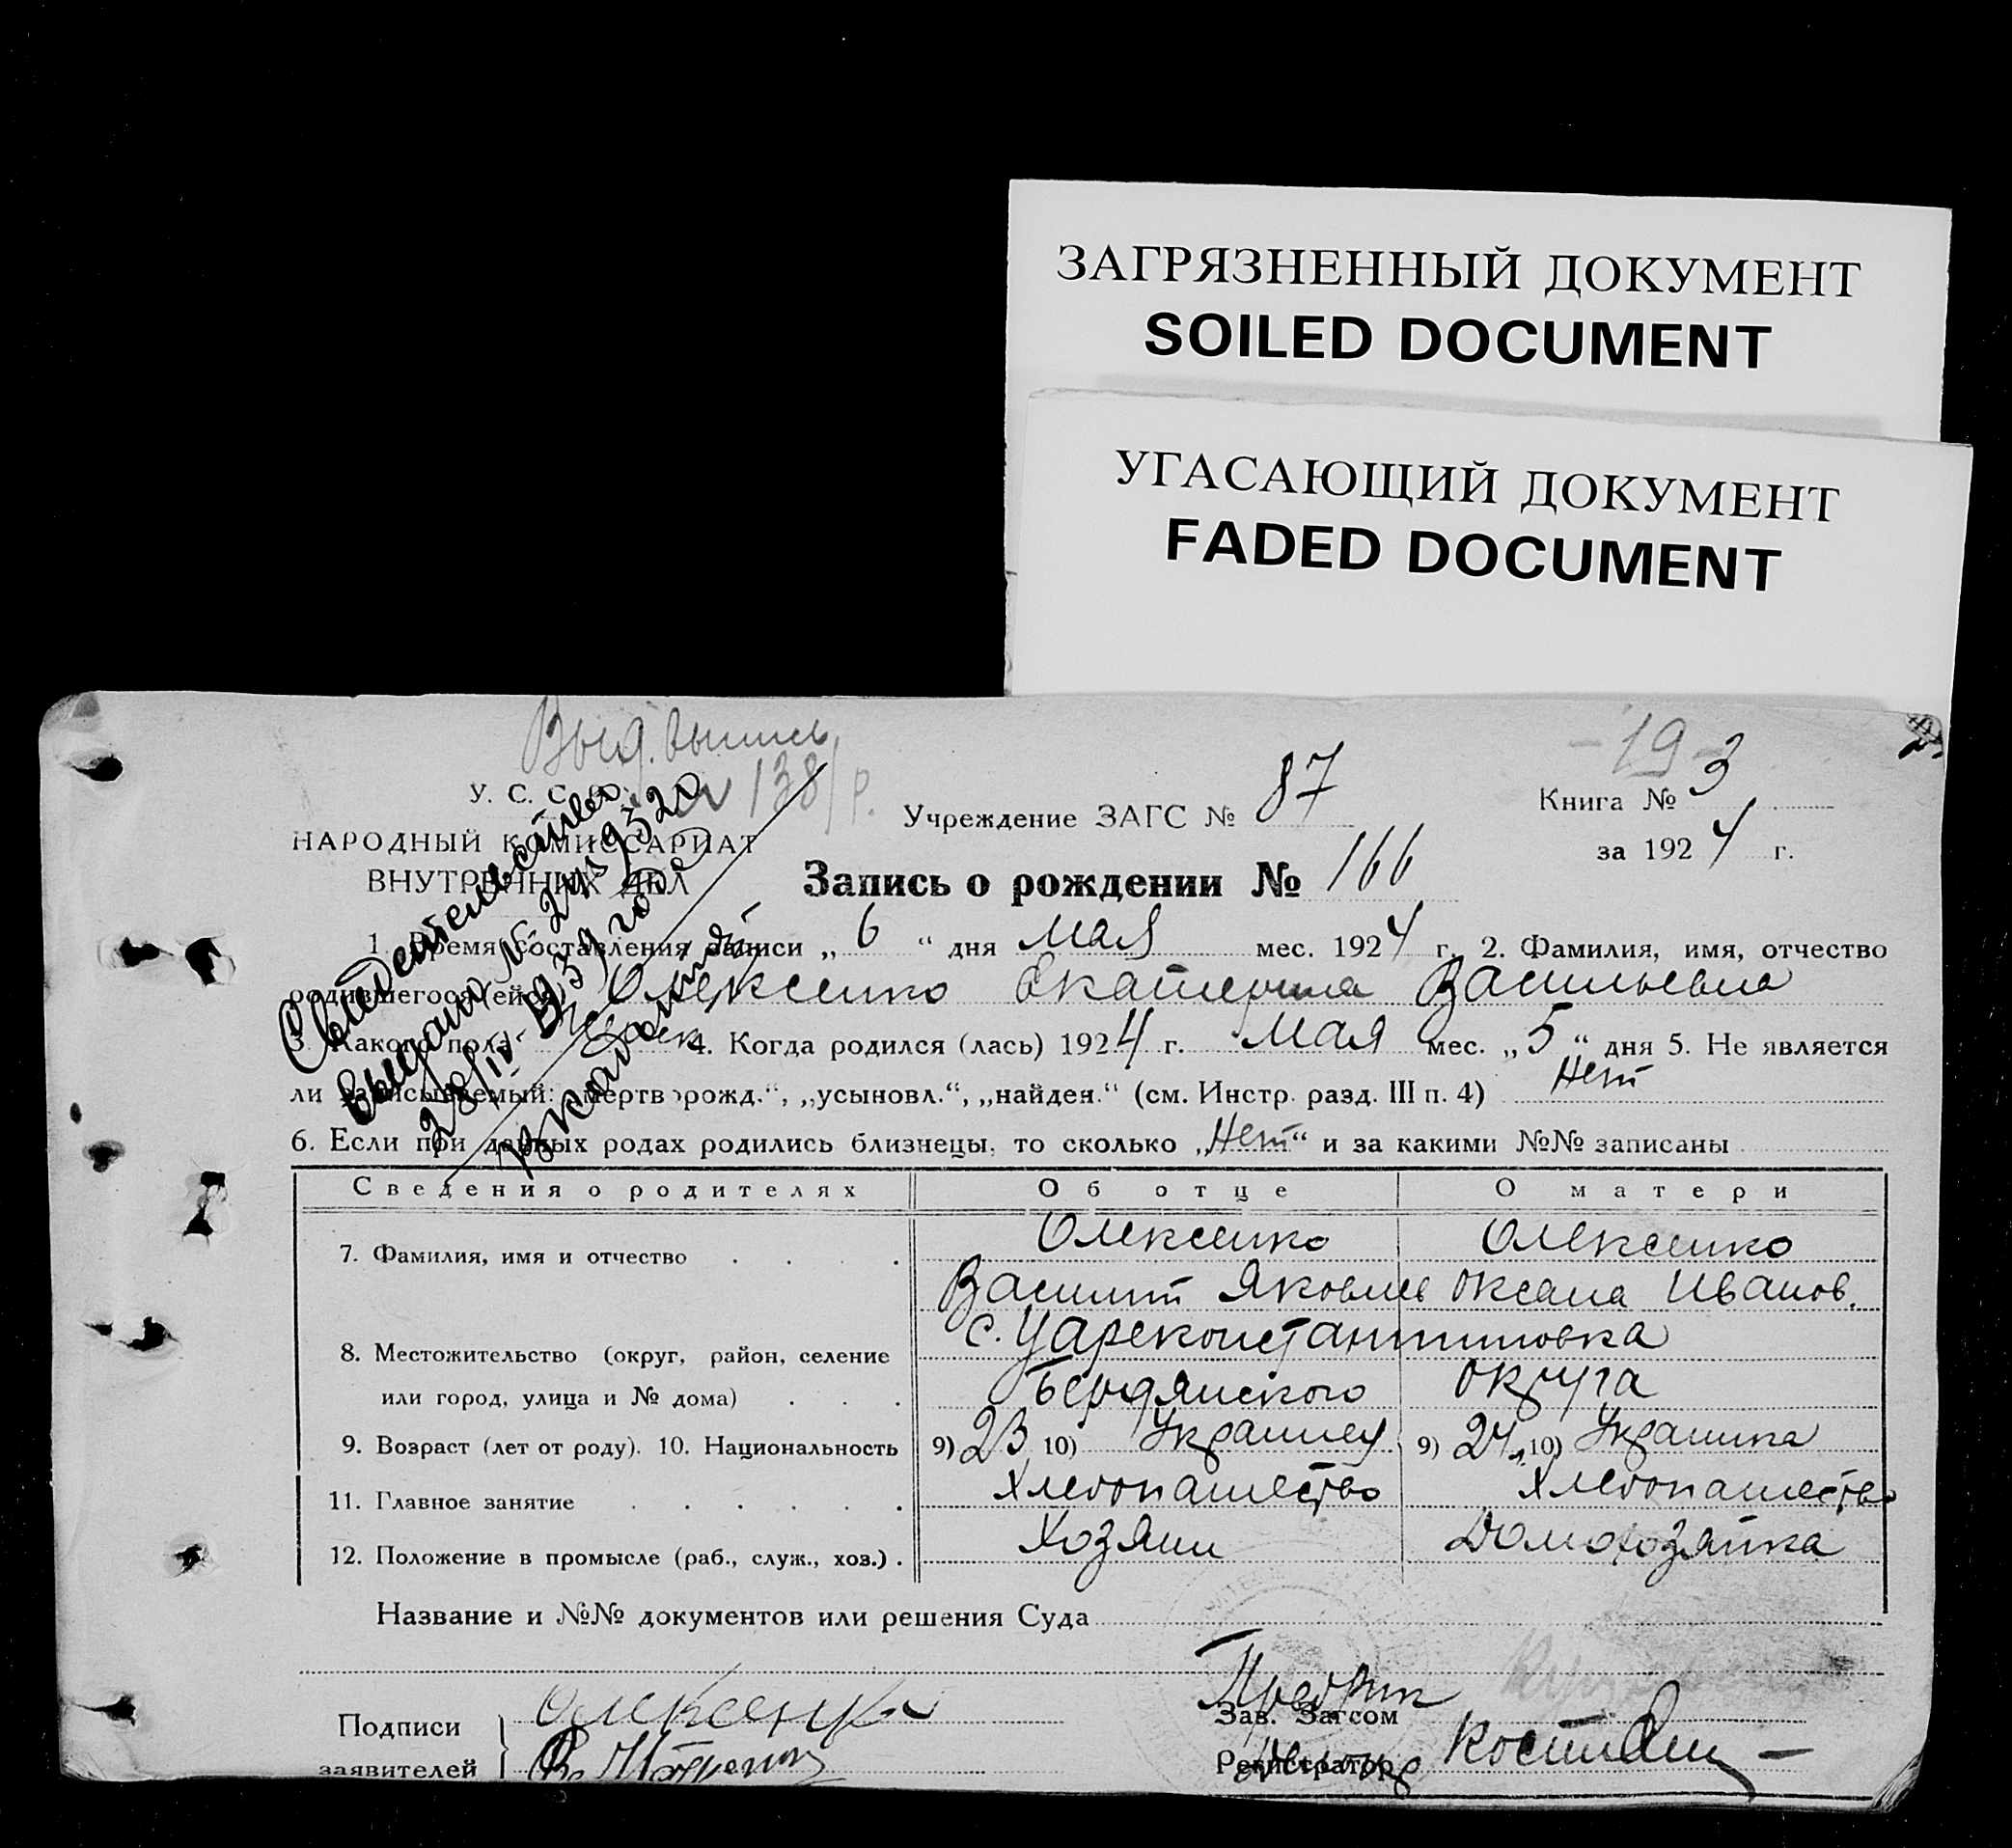 ЗАГРЯЗНЕННЫЙ ДОКУМЕНТ
SOILED DOCUMENT
УГАСАЮЩИЙ ДОКУМЕНТ
FADED DOCUMENT
Выд. выпись
138/р.
- 19 -
У. С. С. Р.
НАРОДНЫЙ КОМИССАРИАТ
ВНУТРЕННИХ ДЕЛ
Учреждение ЗАГС № 87
Книга № 3
за 1924 г.
Свидетельство
выдано №
28/IV-1939 года
Запись о рождении № 166
1. Время составления записи „6“ дня Мая мес. 1924 г. 2. Фамилия, имя, отчество
родившегося (ейся) Олексенко Екатерина Васильевна
3. Какого пола 4. Когда родился (лась) 1924 г. Мая мес. „5“ дня 5. Не является
ли записываемый: „мертворожд.“, „усыновл.“, „найден.“ (см. Инстр. разд. III п. 4) Нет
6. Если при данных родах родились близнецы, то сколько „Нет“ и за какими №№ записаны
Сведения о родителях Об отце О матери
7. Фамилия, имя и отчество Олексенко Олексенко
Василий Яковлев Оксана Иванов.
с. Цареконстантиновка
8. Местожительство (округ, район, селение
или город, улица и № дома) Бердянского округа
9. Возраст (лет от роду). 10. Национальность 9) 23 10) Украинец 9) 24 10) Украинка
11. Главное занятие Хлебопашество Хлебопашество
12. Положение в промысле (раб., служ., хоз.) Хозяин Домохозяйка
Название и №№ документов или решения Суда
Подписи заявителей Олексенко
Зав. Загсом
Регистратор